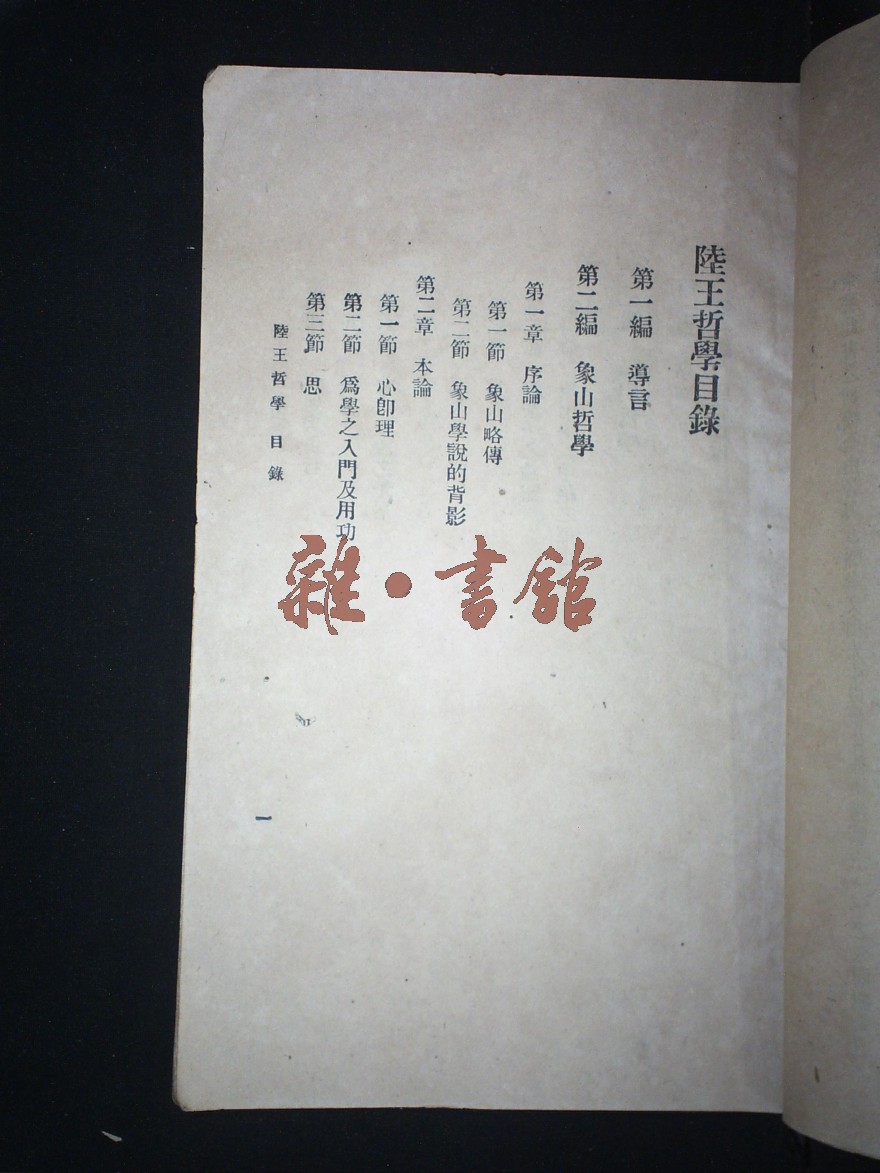 陸王哲學目錄
第一編　導言
第二編　象山哲學
第一章　序論
第一節　象山略傳
第二節　象山學說的背影
第二章　本論
第一節　心卽理
第二節　爲學之入門及用功
第三節　思
陸王哲學　目錄
一
雜·書舘